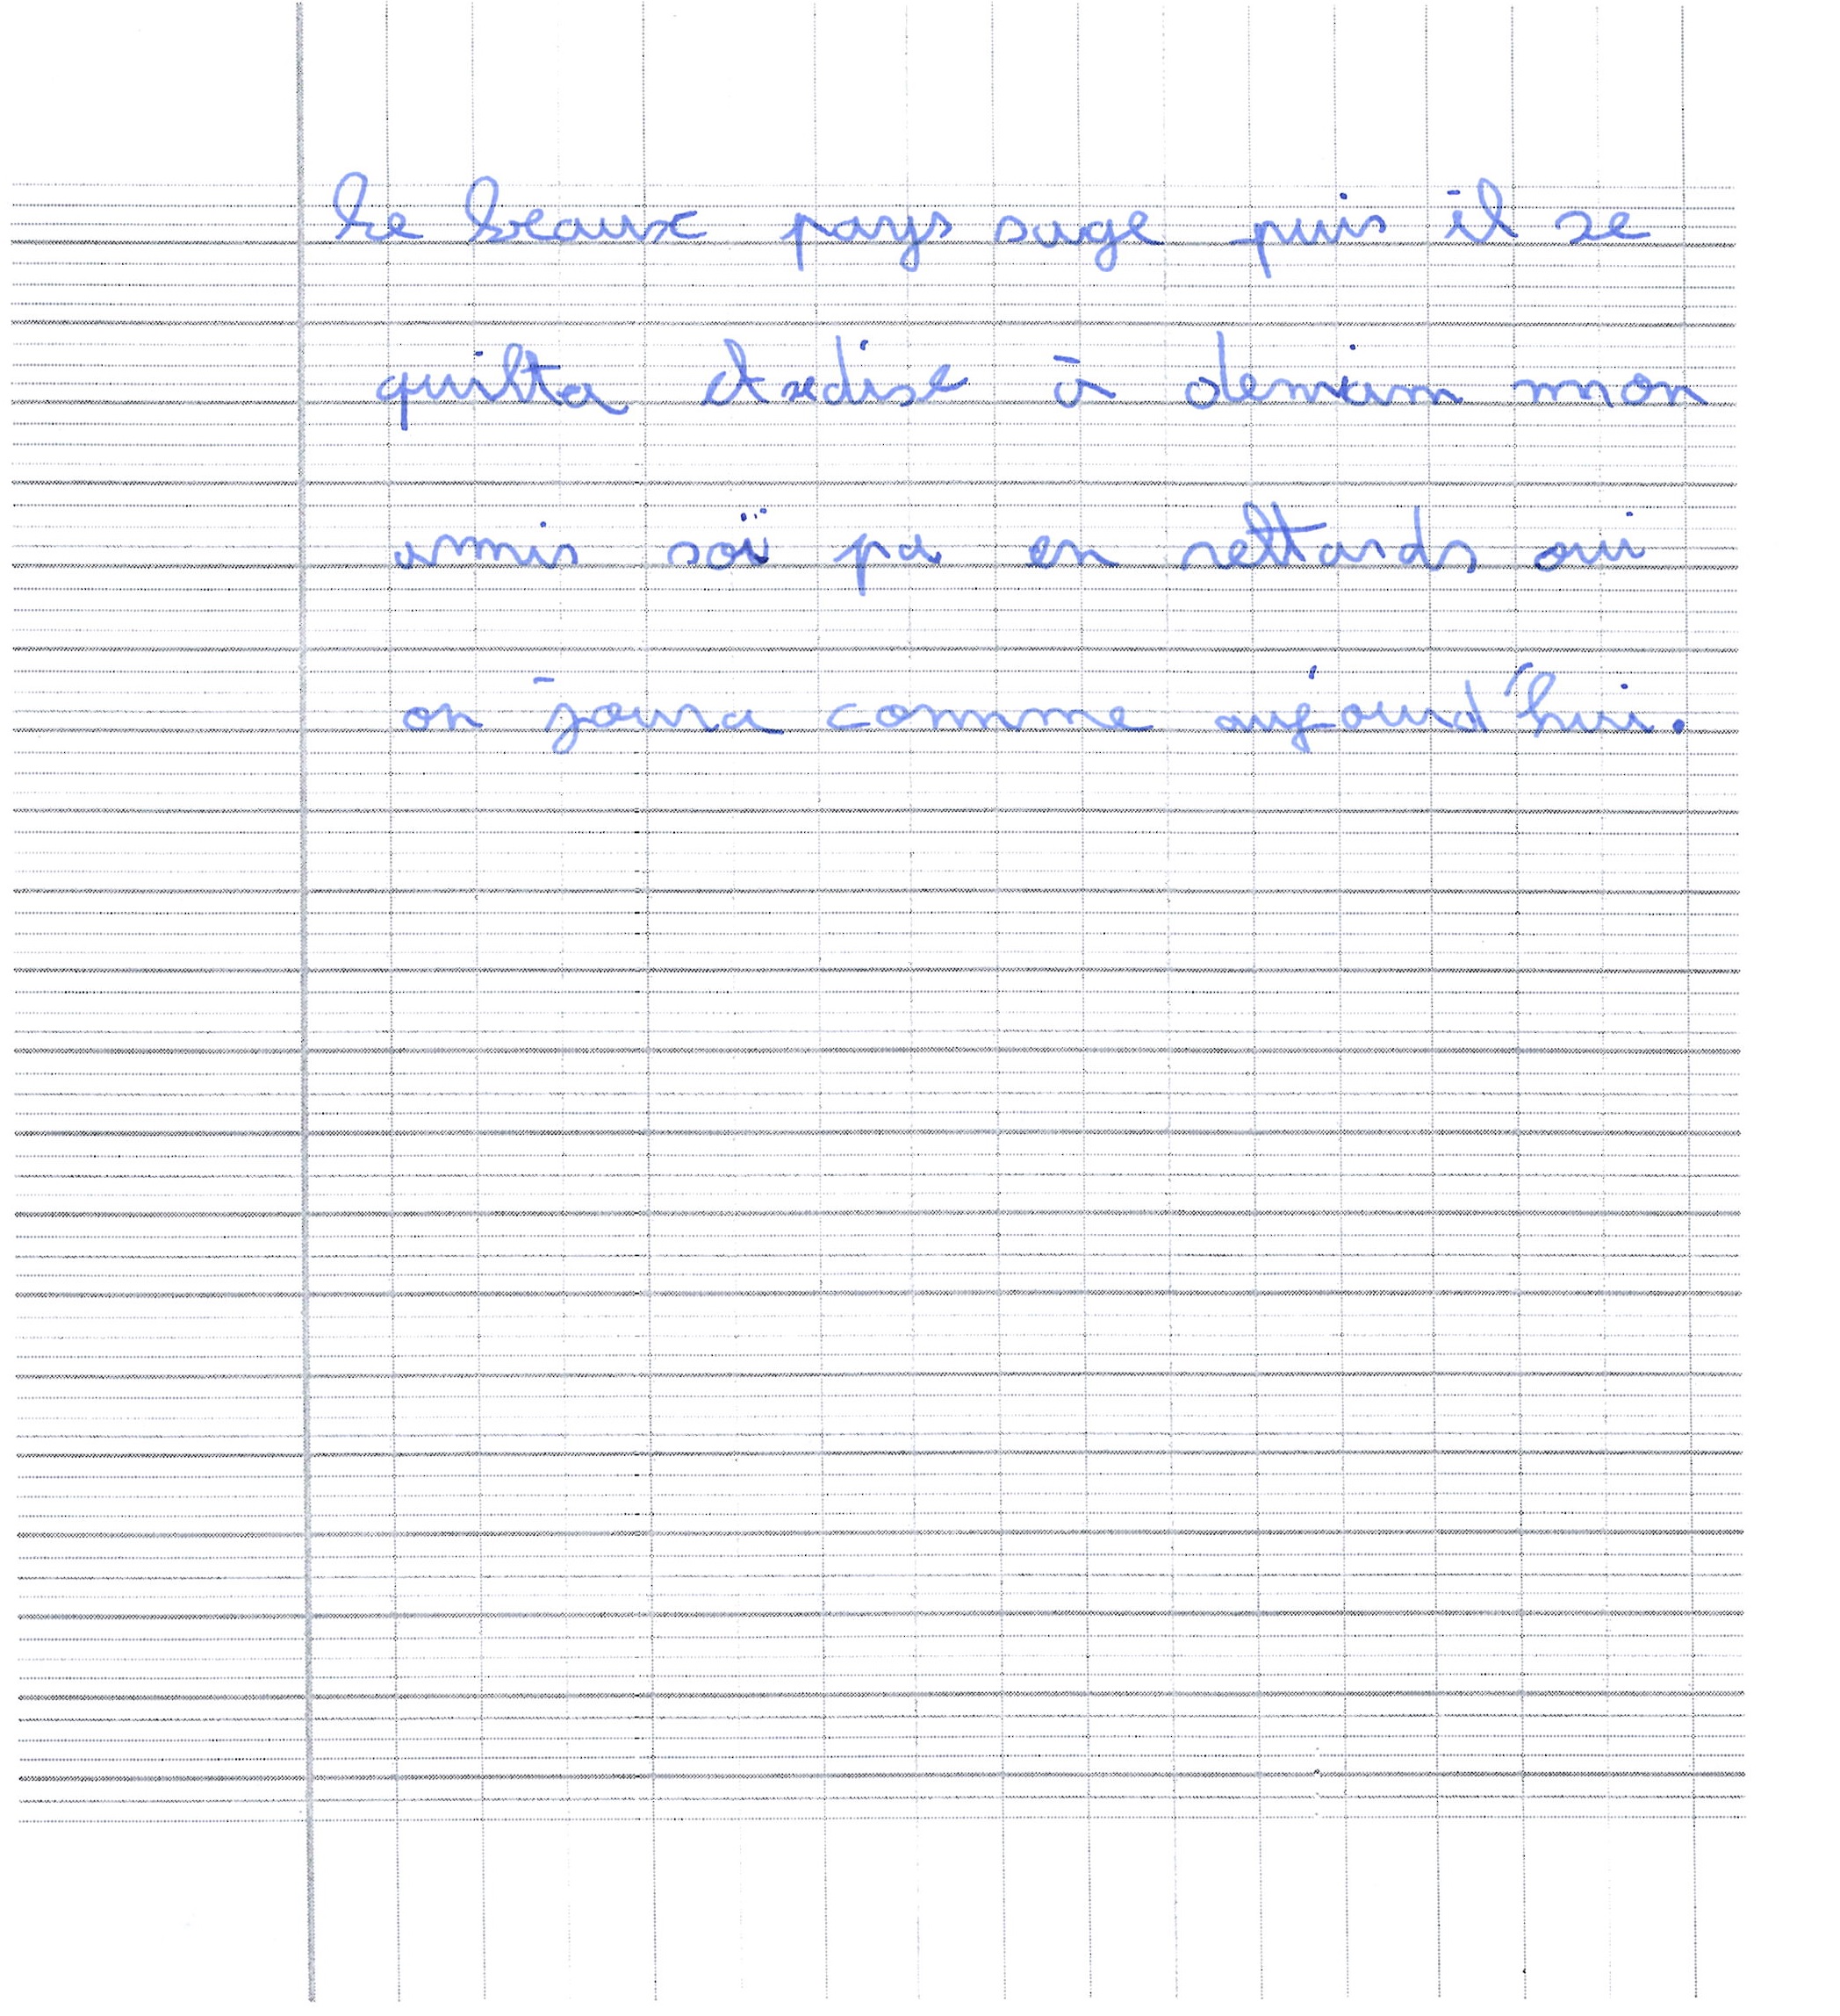 le beaux pays sage puis il se
quitta et se dise à demain mon
amis soï pa en rettards oui
on joura comme aujourd'hui.